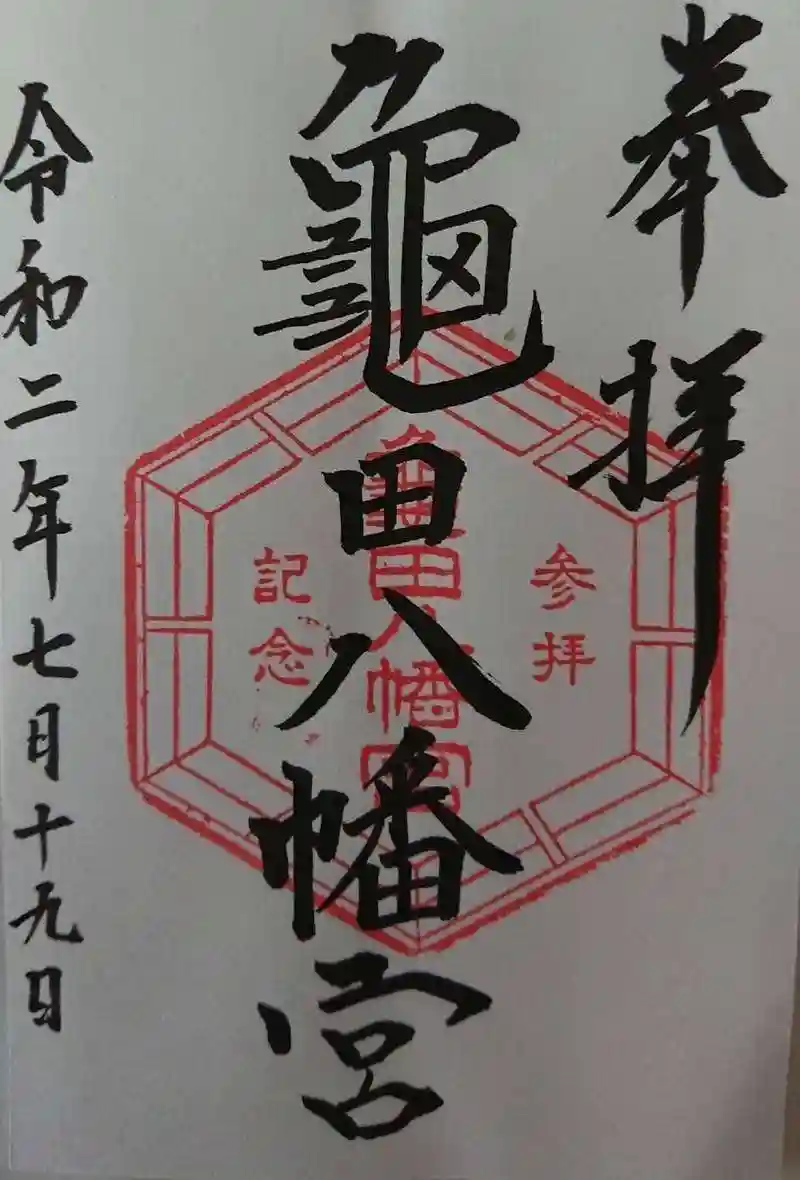 奉拝
龜田八幡宮
参拝
龜田八幡宮
記念
令和二年七月十九日